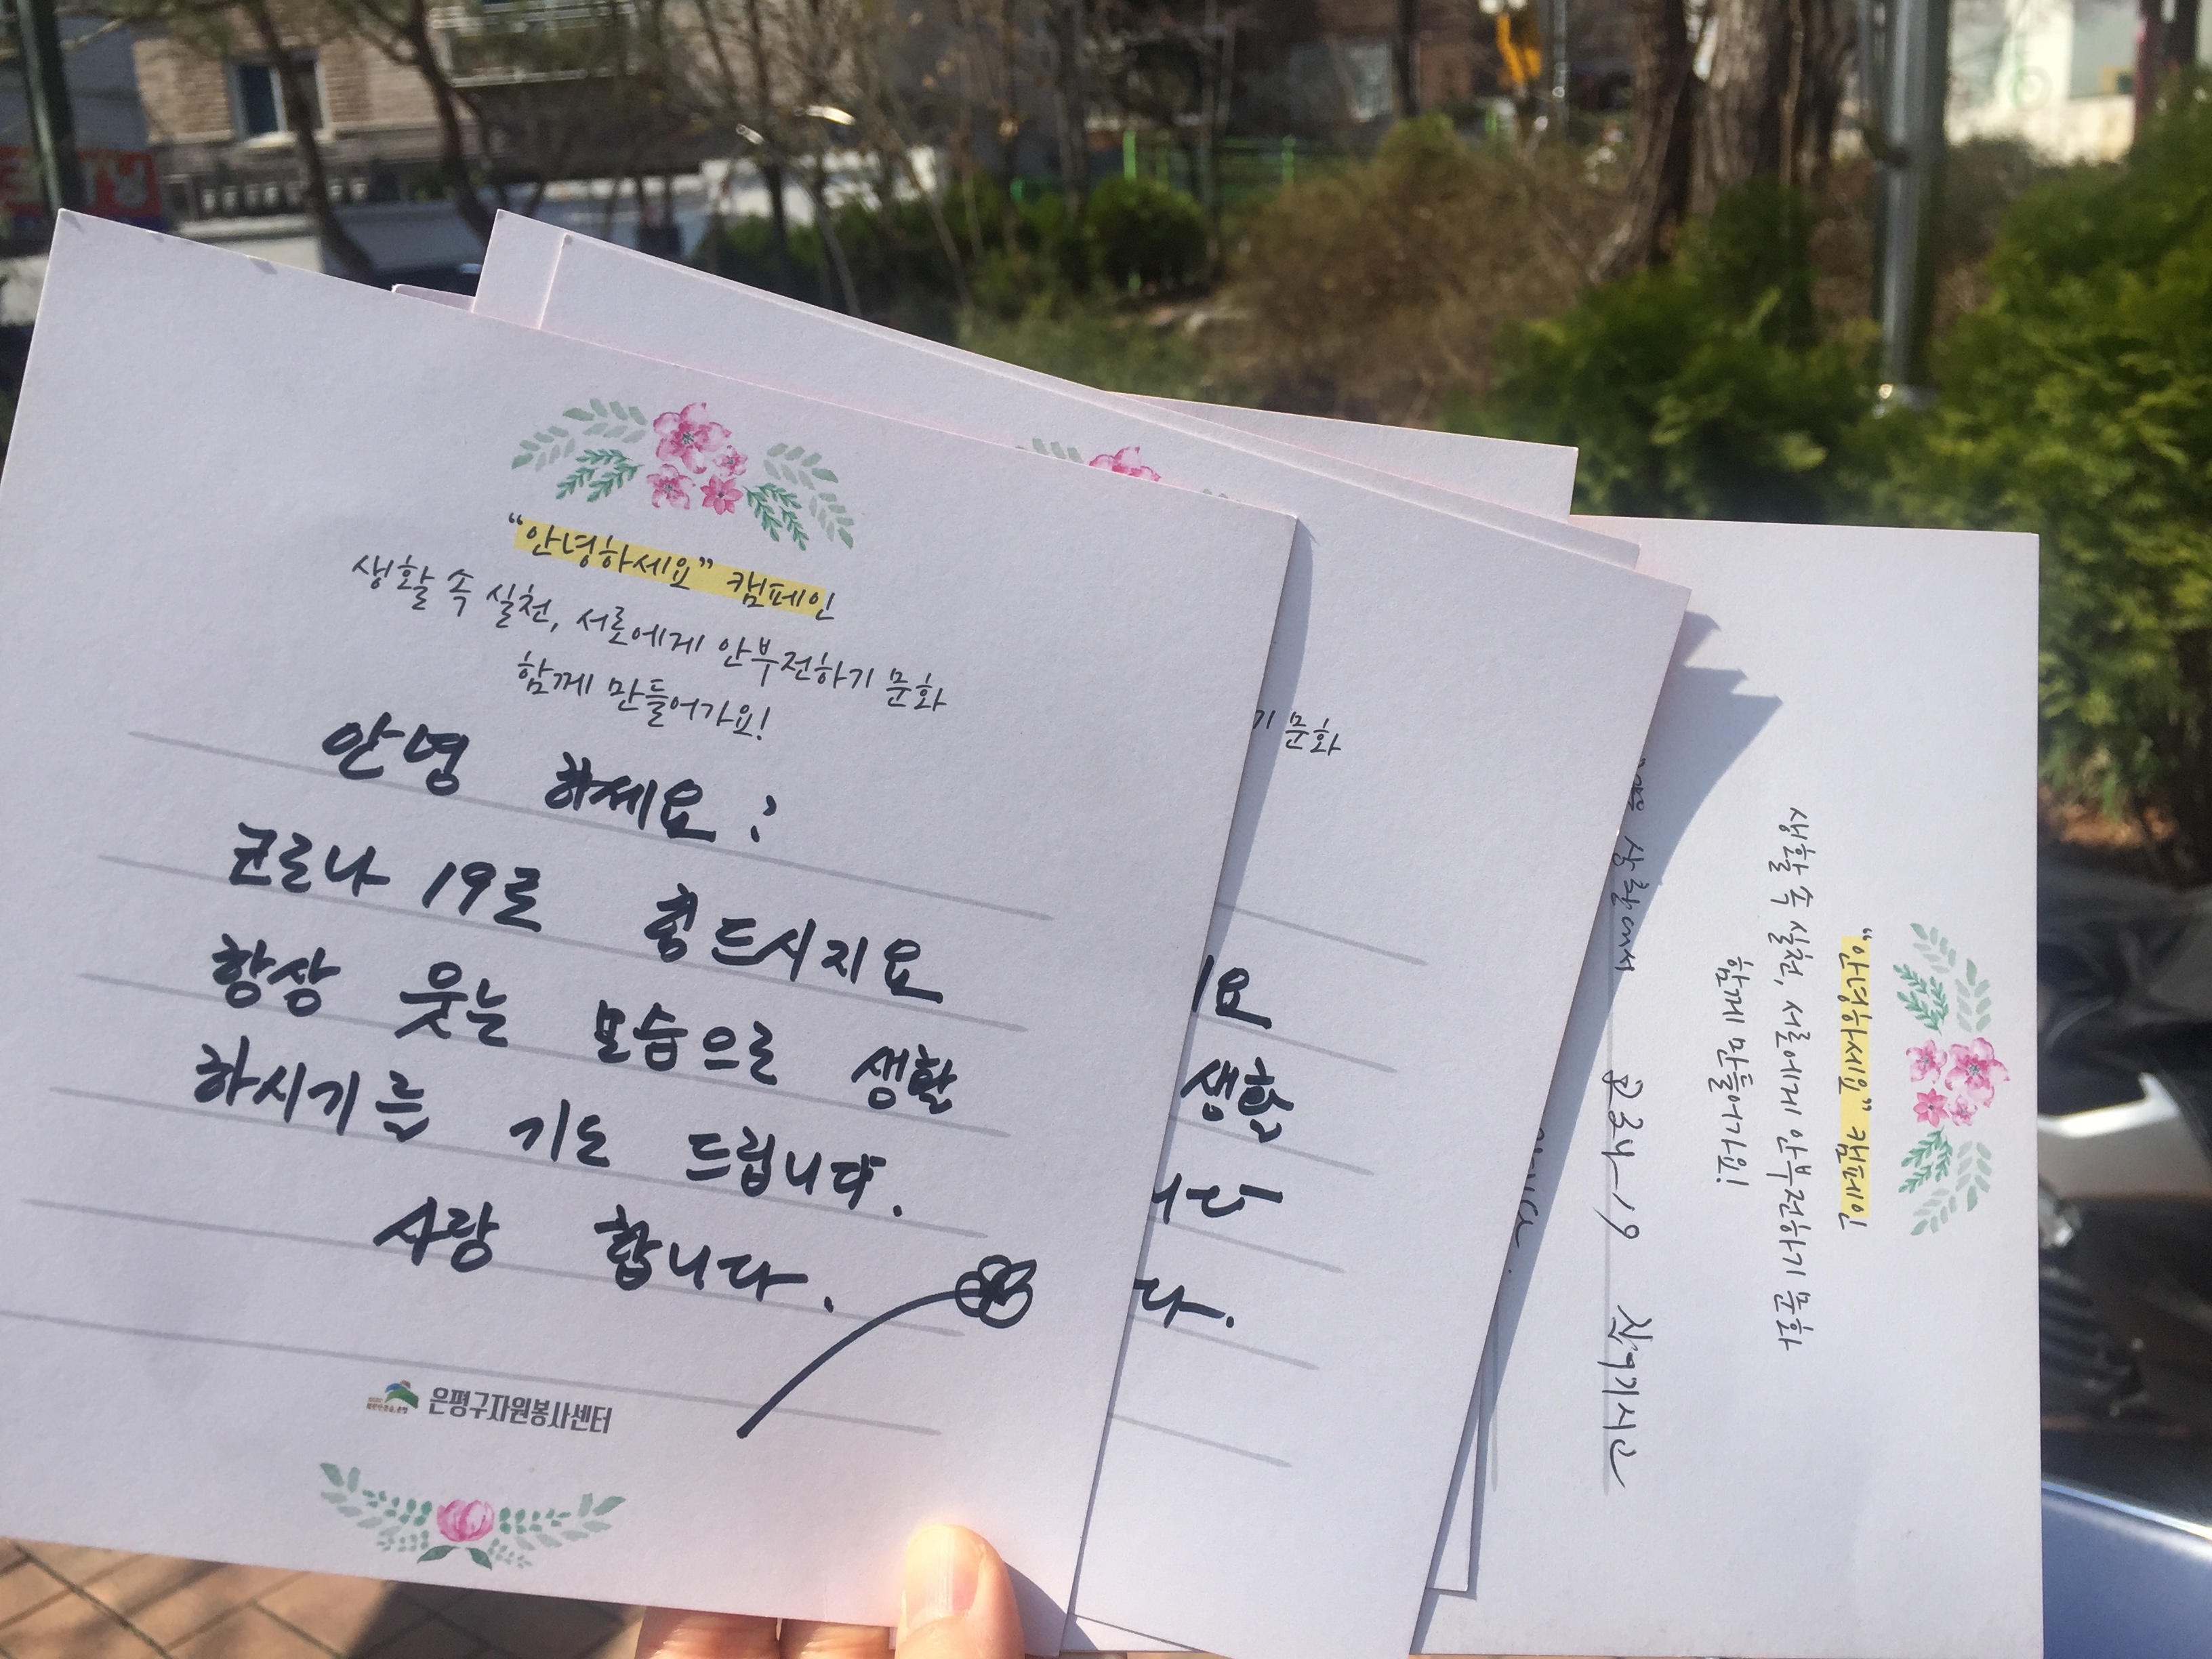 "안녕하세요" 캠페인
생활 속 실천, 서로에게 안부전하기 문화
함께 만들어가요!
안녕 하세요 :
코로나 19로 힘드시지요
항상 웃는 모습으로 생활
하시기를 기도 드립니다.
사랑 합니다.
은평구자원봉사센터
기 문화
요
생활
니다
다.
"안녕하세요" 캠페인
생활 속 실천, 서로에게 안부전하기 문화
함께 만들어가요!
코로나-19
상황에서